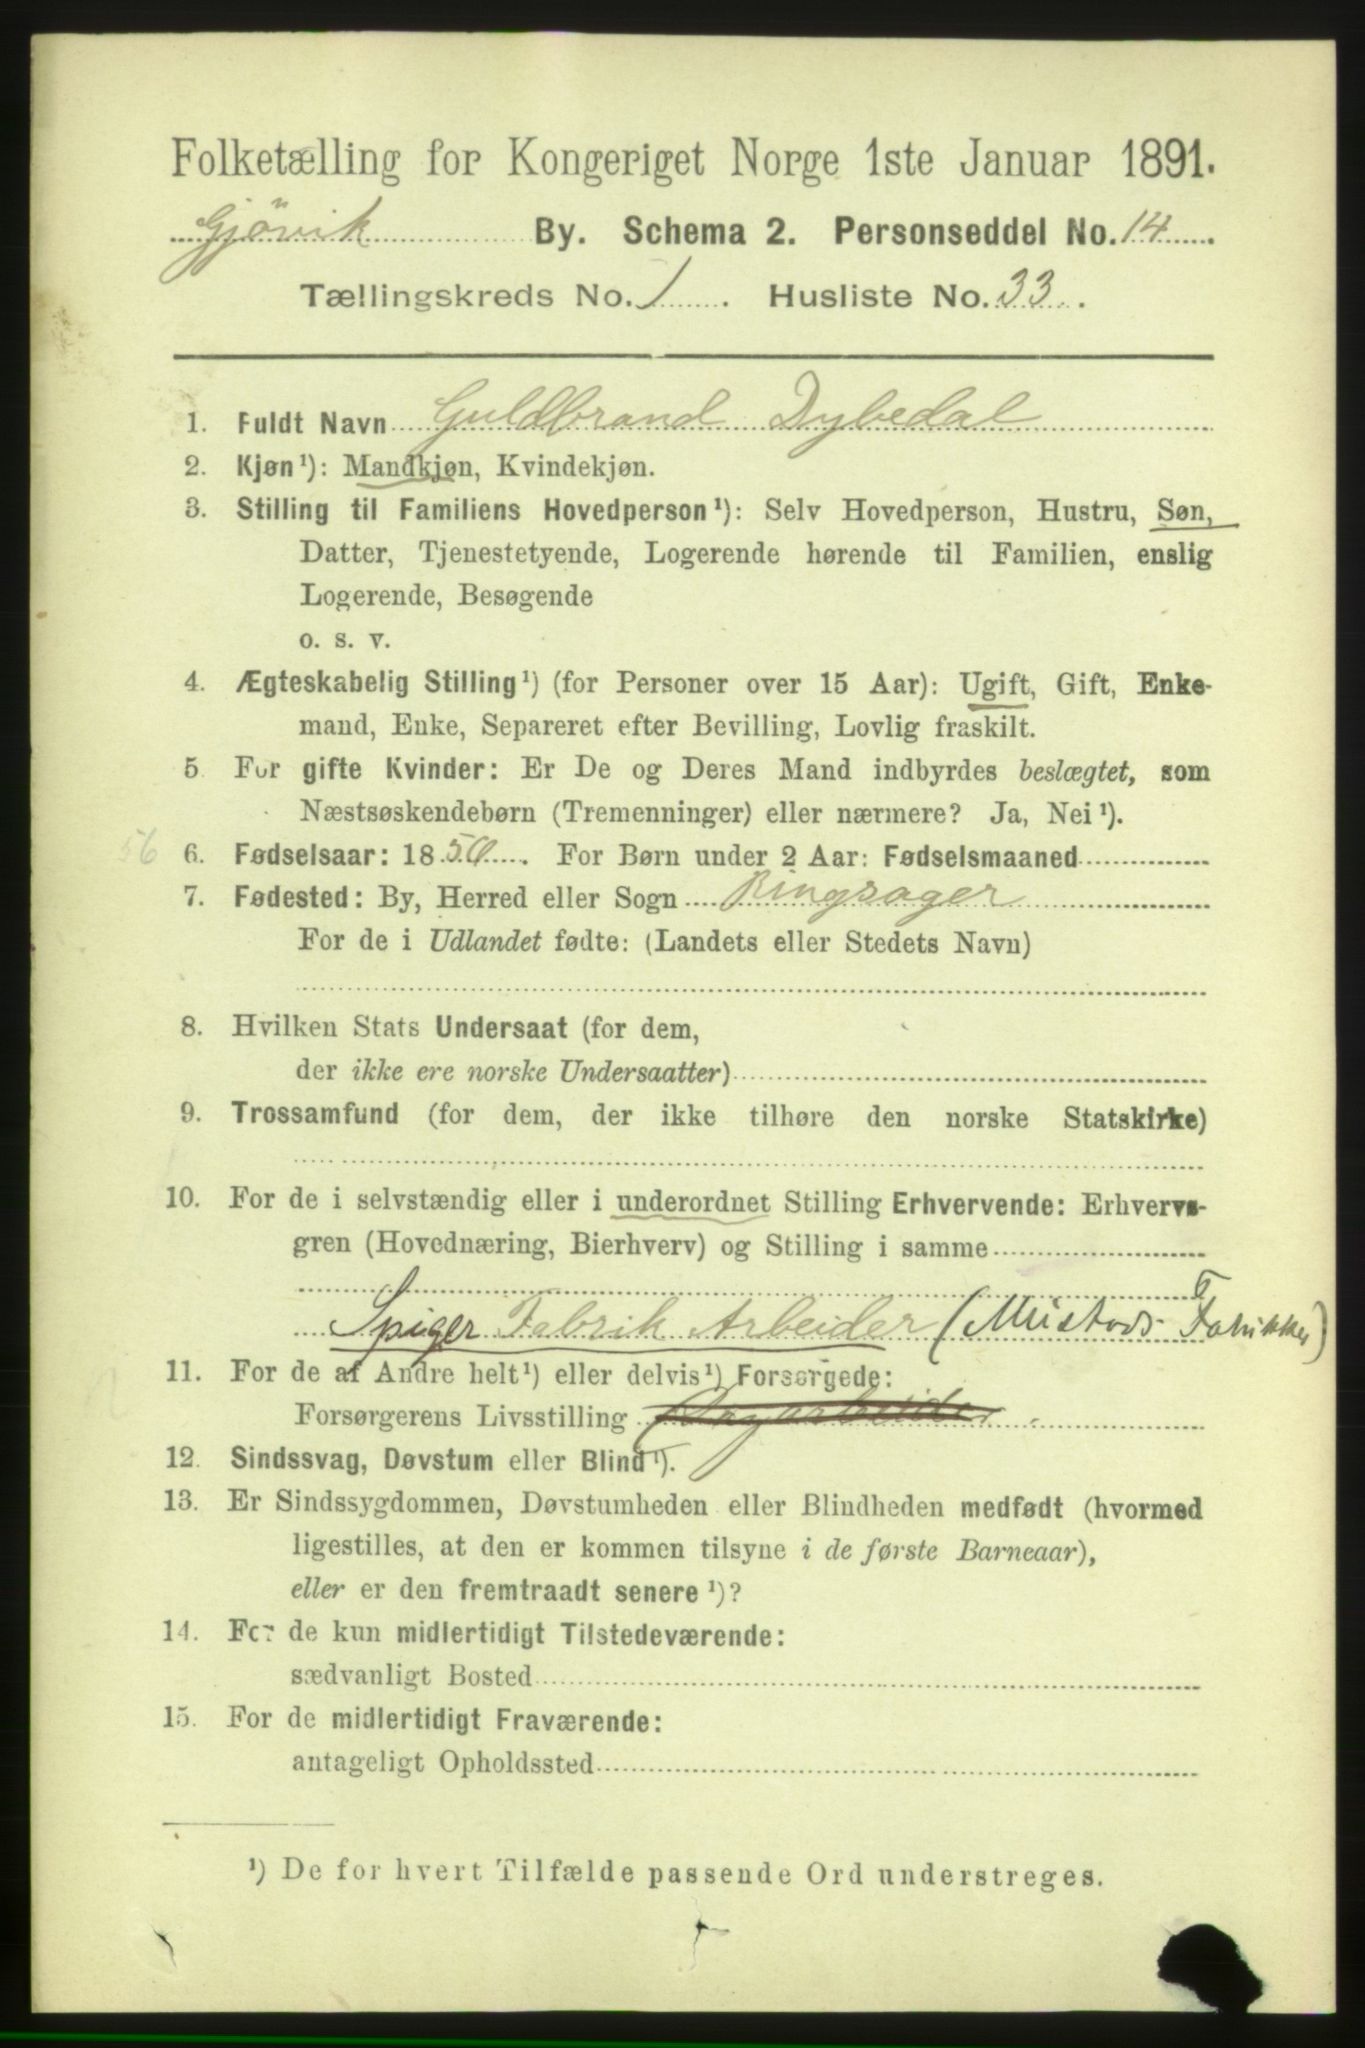 Folketælling for Kongeriget Norge 1ste Januar 1891.
Gjövik By. Schema 2. Personseddel No. 14
Tællingskreds No. 1. Husliste No. 33.
1. Fuldt Navn Guldbrand Dybedal
2. Kjøn¹): Mandkjøn, Kvindekjøn.
3. Stilling til Familiens Hovedperson¹): Selv Hovedperson, Hustru, Søn,
Datter, Tjenestetyende, Logerende hørende til Familien, enslig
Logerende, Besøgende
o. s. v.
4. Ægteskabelig Stilling¹) (for Personer over 15 Aar): Ugift, Gift, Enke-
mand, Enke, Separeret efter Bevilling, Lovlig fraskilt.
5 For gifte Kvinder: Er De og Deres Mand indbyrdes beslægtet, som
Næstsøskendebørn (Tremenninger) eller nærmere? Ja, Nei¹).
56 6. Fødselsaar: 1856. For Børn under 2 Aar: Fødselsmaaned
7. Fødested: By, Herred eller Sogn Ringsager
For de i Udlandet fødte: (Landets eller Stedets Navn)
8. Hvilken Stats Undersaat (for dem,
der ikke ere norske Undersaatter)
9. Trossamfund (for dem, der ikke tilhøre den norske Statskirke)
10. For de i selvstændig eller i underordnet Stilling Erhvervende: Erhvervs-
gren (Hovednæring, Bierhverv) og Stilling i samme
Spiger Fabrik Arbeider (Mustads Fabrikker)
11. For de af Andre helt¹) eller delvis¹) Forsørgede:
Forsørgerens Livsstilling Dagarbeider.
12. Sindssvag, Døvstum eller Blind¹).
13. Er Sindssygdommen, Døvstumheden eller Blindheden medfødt (hvormed
ligestilles, at den er kommen tilsyne i de første Barneaar),
eller er den fremtraadt senere¹)?
14. For de kun midlertidigt Tilstedeværende:
sædvanligt Bosted
15. For de midlertidigt Fraværende:
antageligt Opholdssted
¹) De for hvert Tilfælde passende Ord understreges.